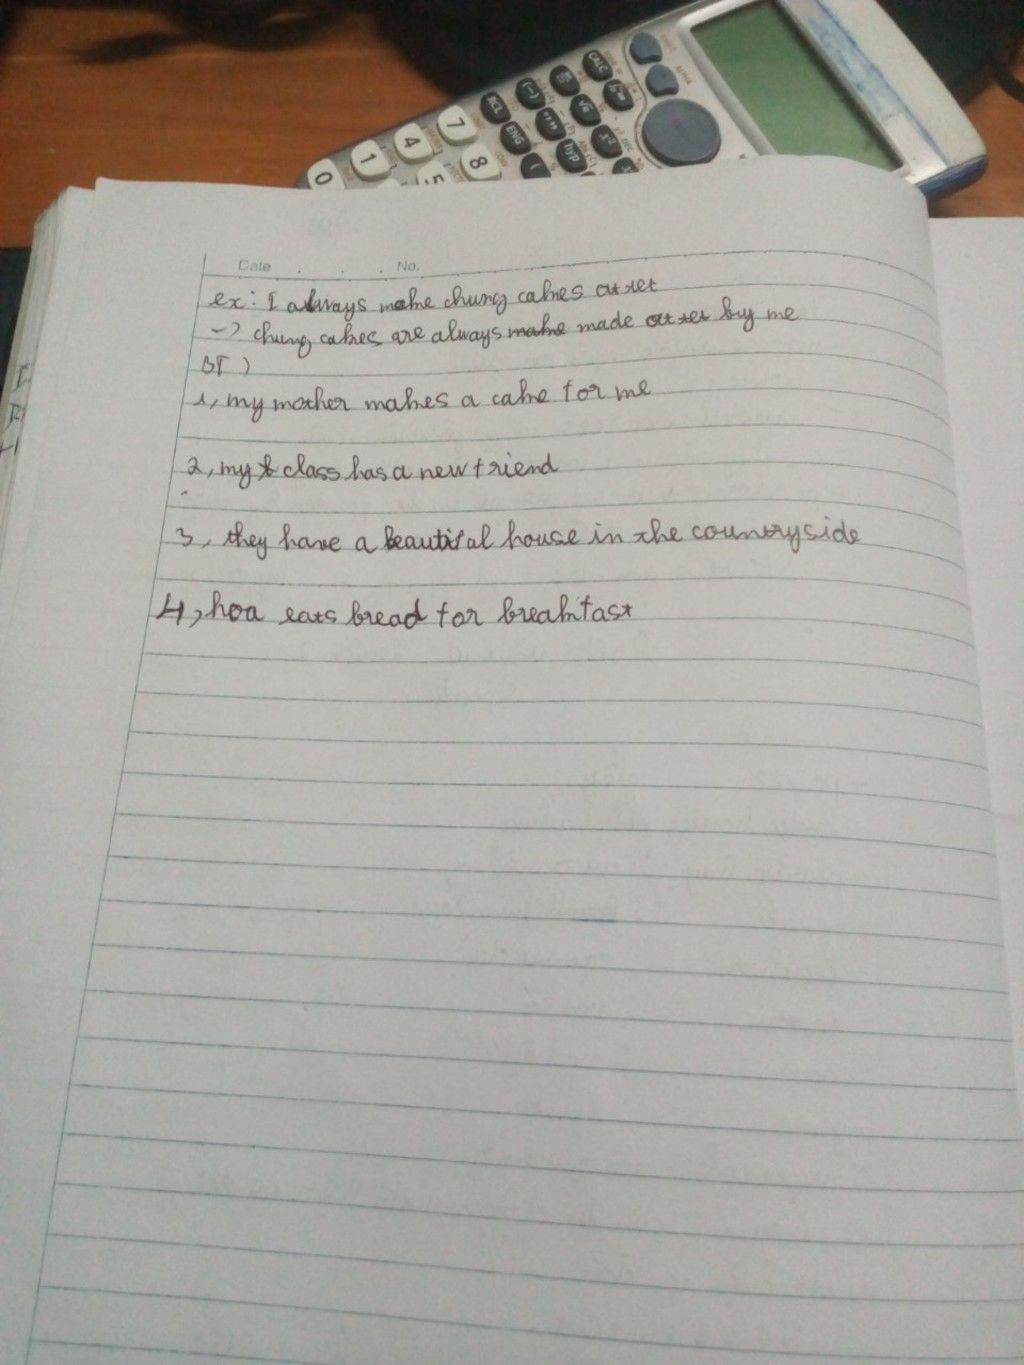 0 1 4 7
5 8
RCL ENG (-) hyp CALC
Date . . . No.
ex: I always make chung cakes at tet
-> chung cakes are always make made at tet by me
BT)
1, my mother makes a cake for me
2, my class has a new friend
3, they have a beautiful house in the countryside
4, hoa eats bread for breakfast